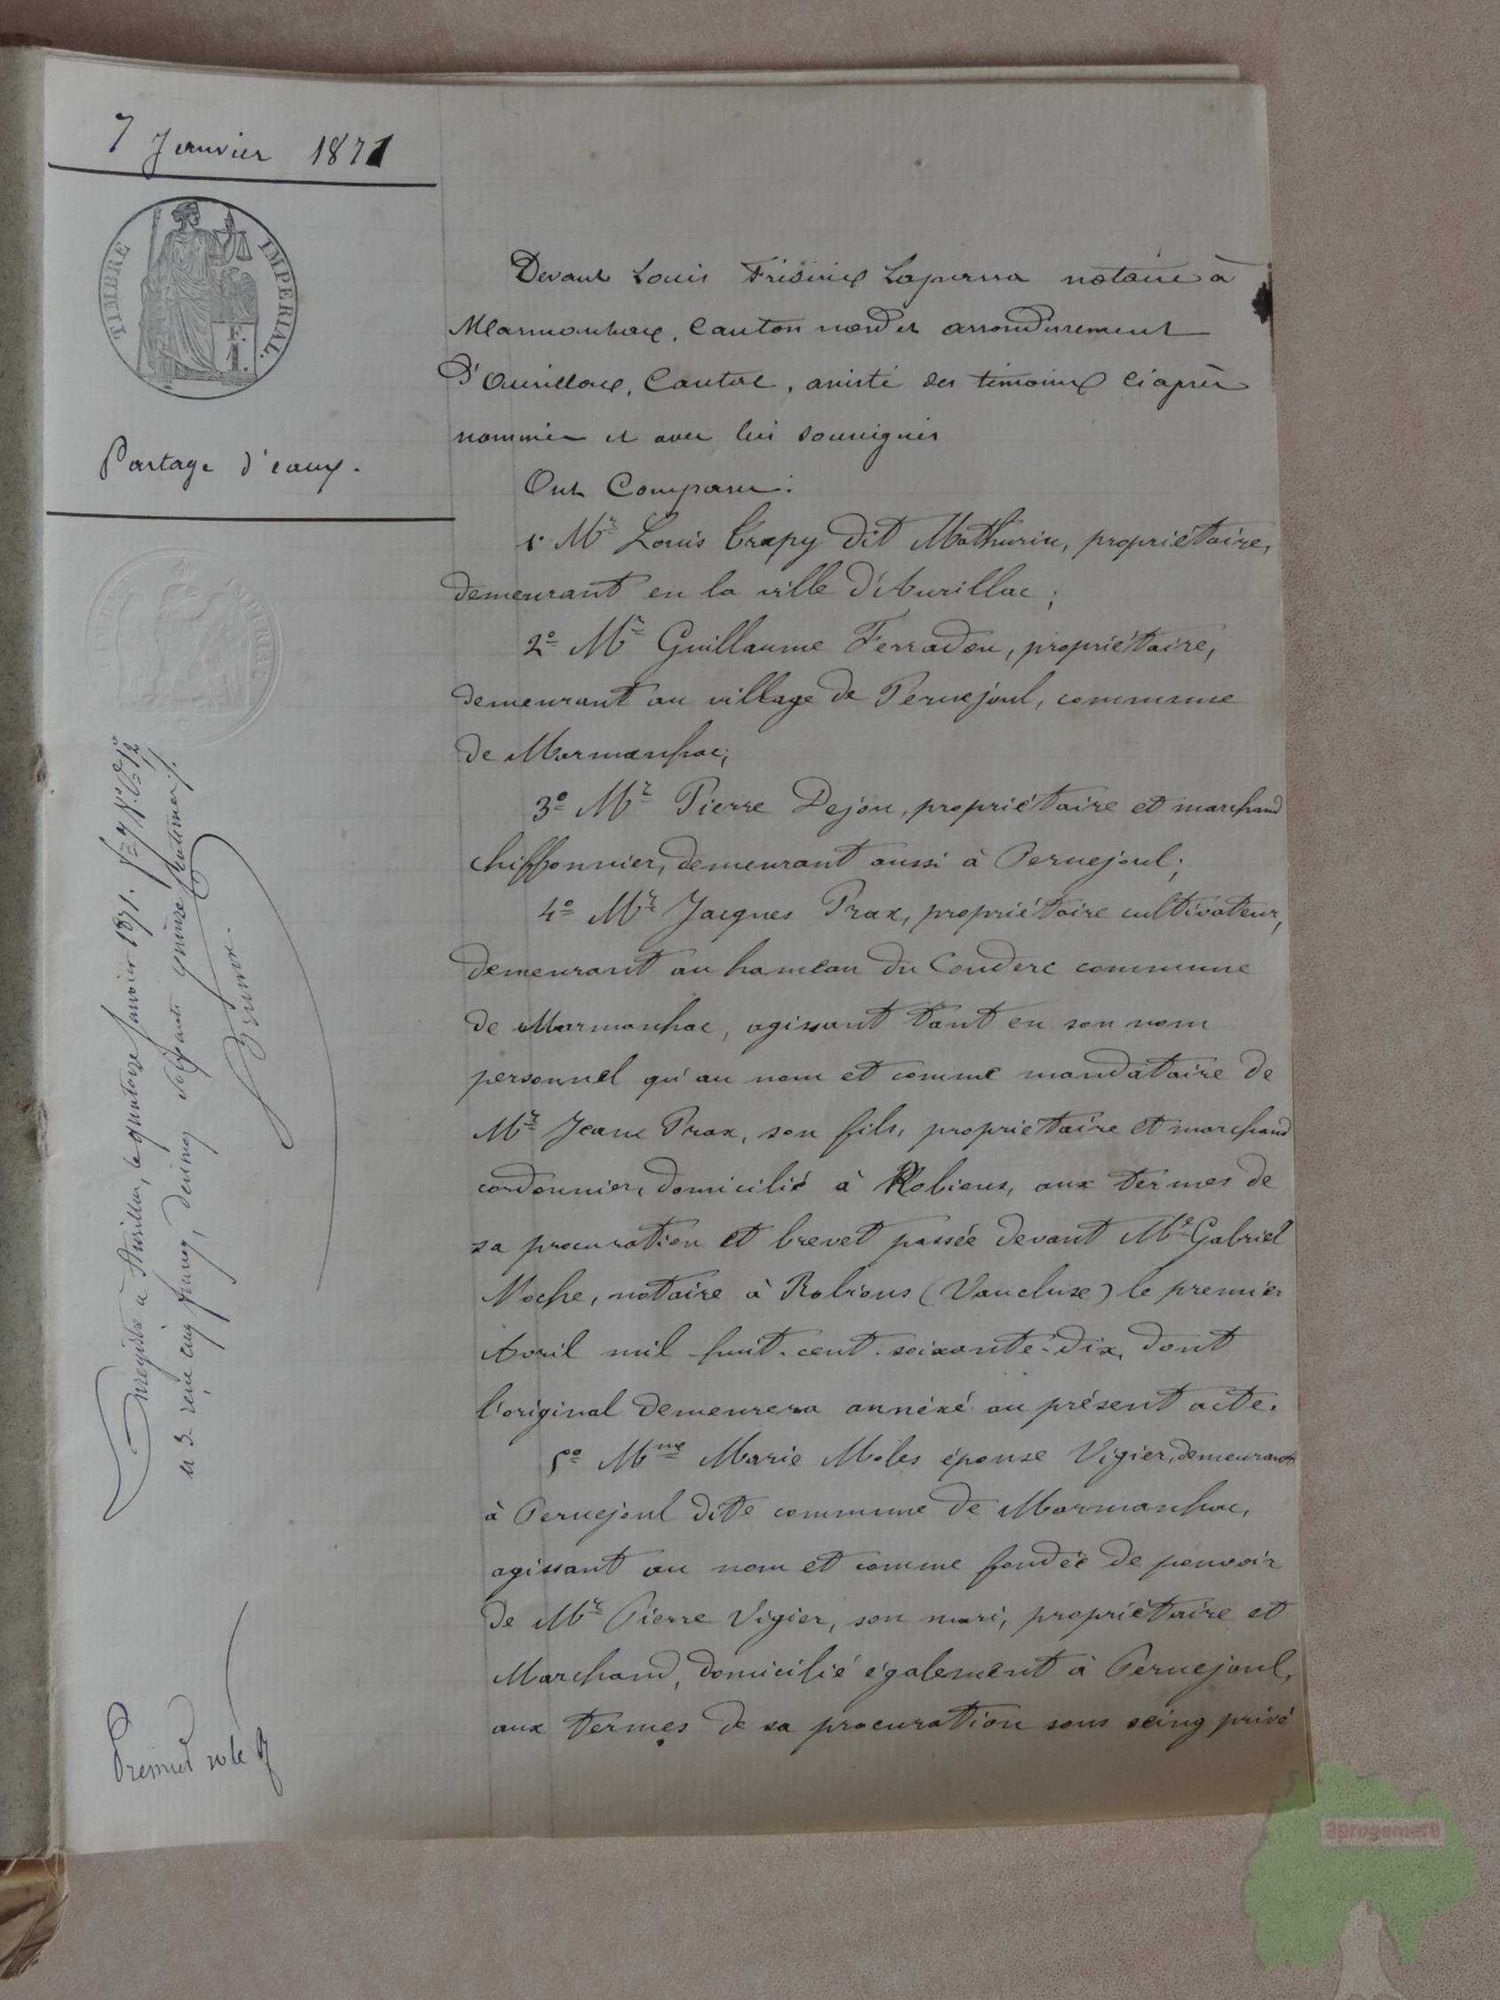 7 Janvier 1871
TIMBRE IMPÉRIAL.
Partage d'eaux.
Devant Louis Fréderic Laperra notaire à
Marmanhac, Canton nord et arrondissement
d'Aurillac, Cantal, assisté des témoins ci après
nommés et avec lui soussignés
Ont Comparu:
1º Mr Louis Crapy dit Mathurin, propriétaire,
demeurant en la ville d'Aurillac;
2º Mr Guillaume Ferradou, propriétaire,
demeurant au village de Peruejoul, commune
de Marmanhac;
3º Mr Pierre Dejou, propriétaire et marchand
chiffonnier, demeurant aussi à Peruejoul;
4º Mr Jacques Prax, propriétaire cultivateur,
demeurant au hameau du Couderc commune
de Marmanhac, agissant tant en son nom
personnel qu'au nom et comme mandataire de
Mr Jean Prax, son fils, propriétaire et marchand
cordonnier, domicilié à Robions, aux termes de
sa procuration et brevet passée devant Me Gabriel
Moche, notaire à Robions (Vaucluse) le premier
Avril mil huit-cent-soixante-dix, dont
l'original demeurera annéxé au présent acte.
5º Mme Marie Moles épouse Vigier, demeurant
à Peruejoul dite commune de Marmanhac,
agissant au nom et comme fondée de pouvoir
de Mr Pierre Vigier, son mari, propriétaire et
Marchand, domicilié également à Peruejoul,
aux termes de sa procuration sous seing privé
Enregistré à Aurillac, le quatorze Janvier 1871.
et 3. reçu cinq francs, decimes soixante quinze centimes
Premier role
3progement